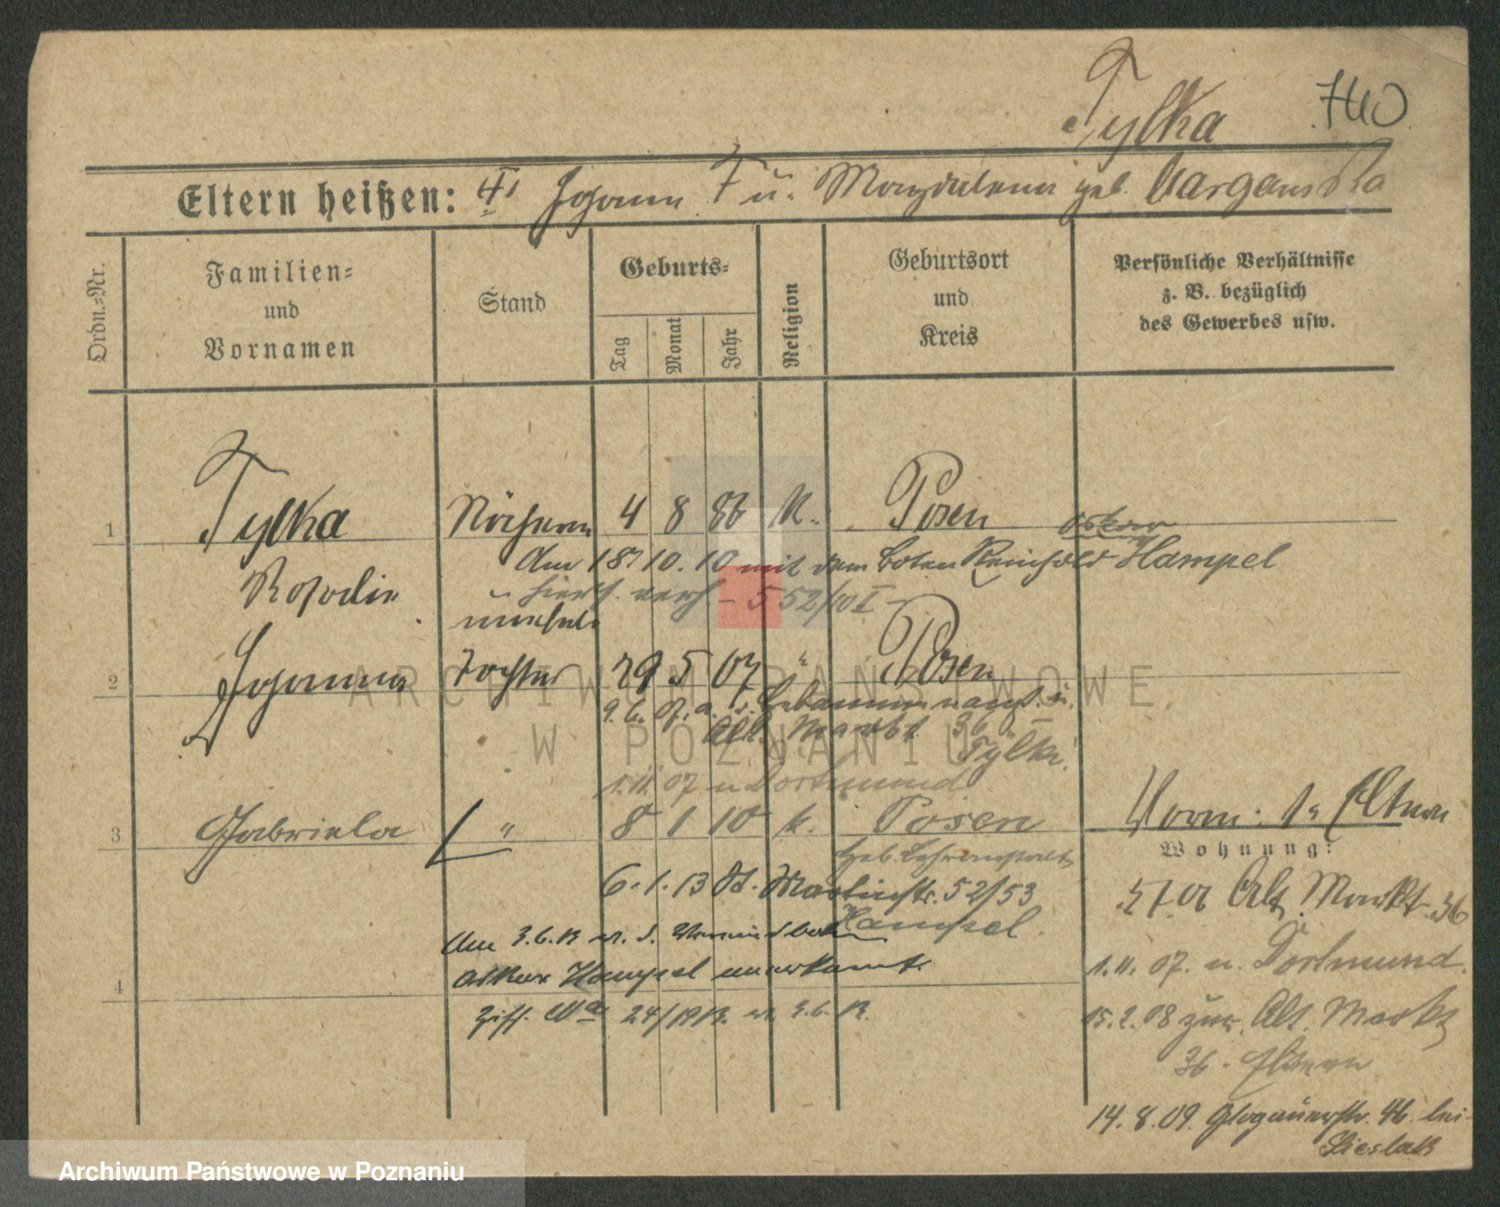 Tylka
740
Eltern heißen: Johann T u. Magdalena geb. Wargowska
Ordn.-Nr.
Familien-
und
Vornamen
Stand
Geburts-
Tag
Monat
Jahr
Religion
Geburtsort
und
Kreis
Persönliche Verhältnisse
z. B. bezüglich
des Gewerbes usw.
1 Tylka Näherin 4 8 86 K. Posen
Oskar
Am 10.10 mit dem Boten Reinhold Hampel
Rosalie hier verh. - 552/10 I
unehel.
2 Johanna Tochter 29 5 07 " Posen
9.6.07. a. d.
Alt. Markt 36
Tylka.
1.11.07 n. Dortmund
3 Gabriela " 8 1 10 k. Posen
Vorm: 1" Eltern
Wohnung:
geb. Lehranstalt
6.1.13 St. Martinstr. 52/53
Hampel.
Alt. Markt 36
Am 3.6.13 v. d.
Oskar Hampel anerkannt.
1.11.07. n. Dortmund.
4
24/1913. v. 3.6.13.
15.2.08 zur. Alt. Markt
36 - Eltern
14.8.09. Glogauerstr. 46 bei
Cieslak
ARCHIWUM PAŃSTWOWE
W POZNANIU
Archiwum Państwowe w Poznaniu